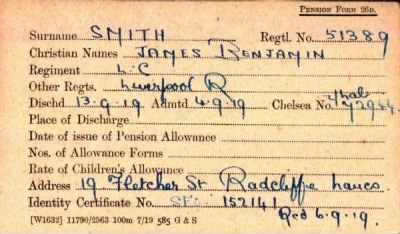 PENSION FORM 26D.
Surname SMITH Regtl. No. 51389
Christian Names JAMES BENJAMIN
Regiment L.C
Other Regts. Liverpool R
Dischd 13.9.19 Admtd 4.9.19 Chelsea No. 72944
Place of Discharge
Date of issue of Pension Allowance
Nos. of Allowance Forms
Rate of Children's Allowance
Address 19 Fletcher St Radcliffe Lancs.
Identity Certificate No. 152141
[W1632] 11790/2563 100m 7/19 585 G & S Rcd 6.9.19.